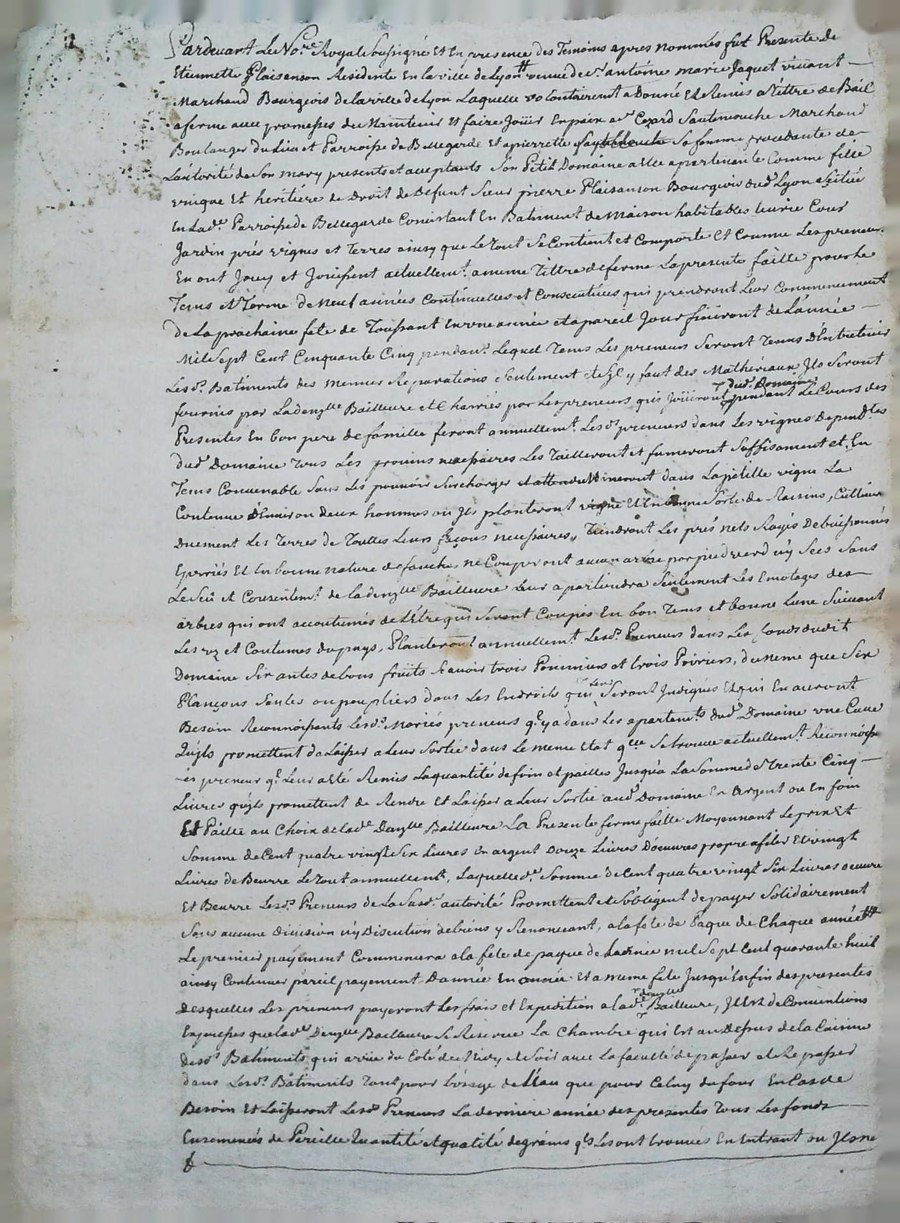 Pardevant Le No.re Royal Soussigné Et En presence des Temoins apres nommés fut Presente de
Etiennette Plaisanson Residente En la ville de Lyon veuve de S.r antoine marie Jaquet vivant
Marchand Bourgeois de la ville de Lyon Laquelle volontairem.t a Donné Et Remis a Tittre de Bail
aferme avec promesses de Maintenir et faire Joüir En paix a Sautemouche Marchand
Boulanger du lieu et Parroisse de Bellegarde et a pierrette Sa femme procedante de
L'autorité de Son mary presents et acceptants Son Petit Domaine a Elle apartenant Comme fille
unique Et heritiere de Droit de Defunt Sieur pierre Plaisanson Bourgeois dud. Lyon Scitué
En Lad.e Parroisse de Bellegarde Consistant En Batiment de Maison habitables Cour
Jardin prés vignes et Terres ainsy que Le tout Se Contient et Comporte Et Comme Les preneurs
En ont Jouy et Joüissent actuellem.t a meme Tittre de ferme La presente faitte pour le
Tems et Terme de neuf années Continuelles et Consecutives qui prendront Leur Commencement
de La prochaine fete de Toussaint En une année et a pareil Jour finiront de L'année
Mil Sept Cent Cinquante Cinq pendan.t Lequel Tems Les preneurs Seront Tenus D'Entretenir
Les d. Batiments des menues Reparations Seulement et S'il y faut des Mathériaux Ils Seront
fournis par Lad. Bailleure et Charriés par Les preneurs qui Joüiront dud. Domaine pendant Le Cours des
Presentes En bon pere de famille feront annuellem.t Les d. preneurs dans Les vignes Dépend.tes
dud. Domaine Tous Les provins necessaires Les Tailleront et fumeront Suffisament et En
Tems Convenable Sans Les pouvoir Surcharger et dans La petitte vigne La
Contenue D'Environ deux hommes ou Ils planteront vigne Et En bonne Sorte de Raisins, Cultive
Duement Les Terres de Toutes Leurs façons necessaires, Tiendront Les prés nets Rayés Debuissonnés
Epierrés Et En bonne nature de fauche, ne Couperont aucun arbre par pied verd n'y Secs Sans
Le Sceu et Consentem.t de Lad. Bailleure Leur apartiendra Seulement Les Emotages des
arbres qui ont accoutumés de L'Etre qui Seront Coupés En bon Tems et bonne Lune Suivant
Les uz et Coutumes du pays, Planteront annuellem.t Les d. Preneurs dans Les fonds dudit
Domaine Six antes de bons fruits Scavoir trois Pommiers et trois Poiriers, de Meme que Six
Plançons Saules ou peupliers dans Les Endroits qui Leur Seront Indiqués Et qui En auront
Besoin Reconnoissants Les d. Mariés preneurs q.l y a dans Les apartem.ts dud. Domaine une Cuve
Qu'ils promettent de Laisser a Leur Sortie dans Le meme Etat q.lle Se trouve actuellem.t Reconnoisse
preneur q.l Leur a Eté Remis La quantité de foin et pailles Jusqu'a La Somme de Trente Cinq
Livres qu'ils promettent de Rendre Et Laisser a Leur Sortie aud. Domaine En Argent ou En foin
Et Paille au Choix de Lad.e Bailleure La Presente ferme faitte Moyennant Le prix Et
Somme de Cent quatre vingt Six Livres En argent Douze Livres D'oeuvres propre a filer Et vingt
Livres de Beurre Le Tout annuellem.t, Laquelle d. Somme de Cent quatre vingt Six Livres oeuvre
Et Beurre Les d. Preneurs de La Susd. autorité Promettent et S'obligent de payer Solidairement
Sans aucune Division n'y Discution de biens y Renonçant, a La fete de Paque de Chaque année
Le premier payement Commencera a La fete de paque de Mil Sept Cent quarante huit
ainsy Continuer pareil payement D'année En année Et a meme fete Jusqu'En fin des presentes
desquelles Les preneurs payeront Les frais et Expedition a Lad.e Bailleure, Il Est de Conventions
Expresses que Lad.e Bailleure Se Reserve La Chambre qui Est au Dessus de La Cuisine
desd. Batiments qui Du Coté de et Soir avec La faculté de passer et Repasser
dans Les d. Batiments Tant pour L'usage de L'eau que pour Celuy du four En Cas de
Besoin Et Laisseront Les d. Preneurs La derniere année des presentes Tous Les fonds
Ensemencés de Pareille Quantité et qualité de grains q.ls Les ont trouvés En Entrant ou Ils ne